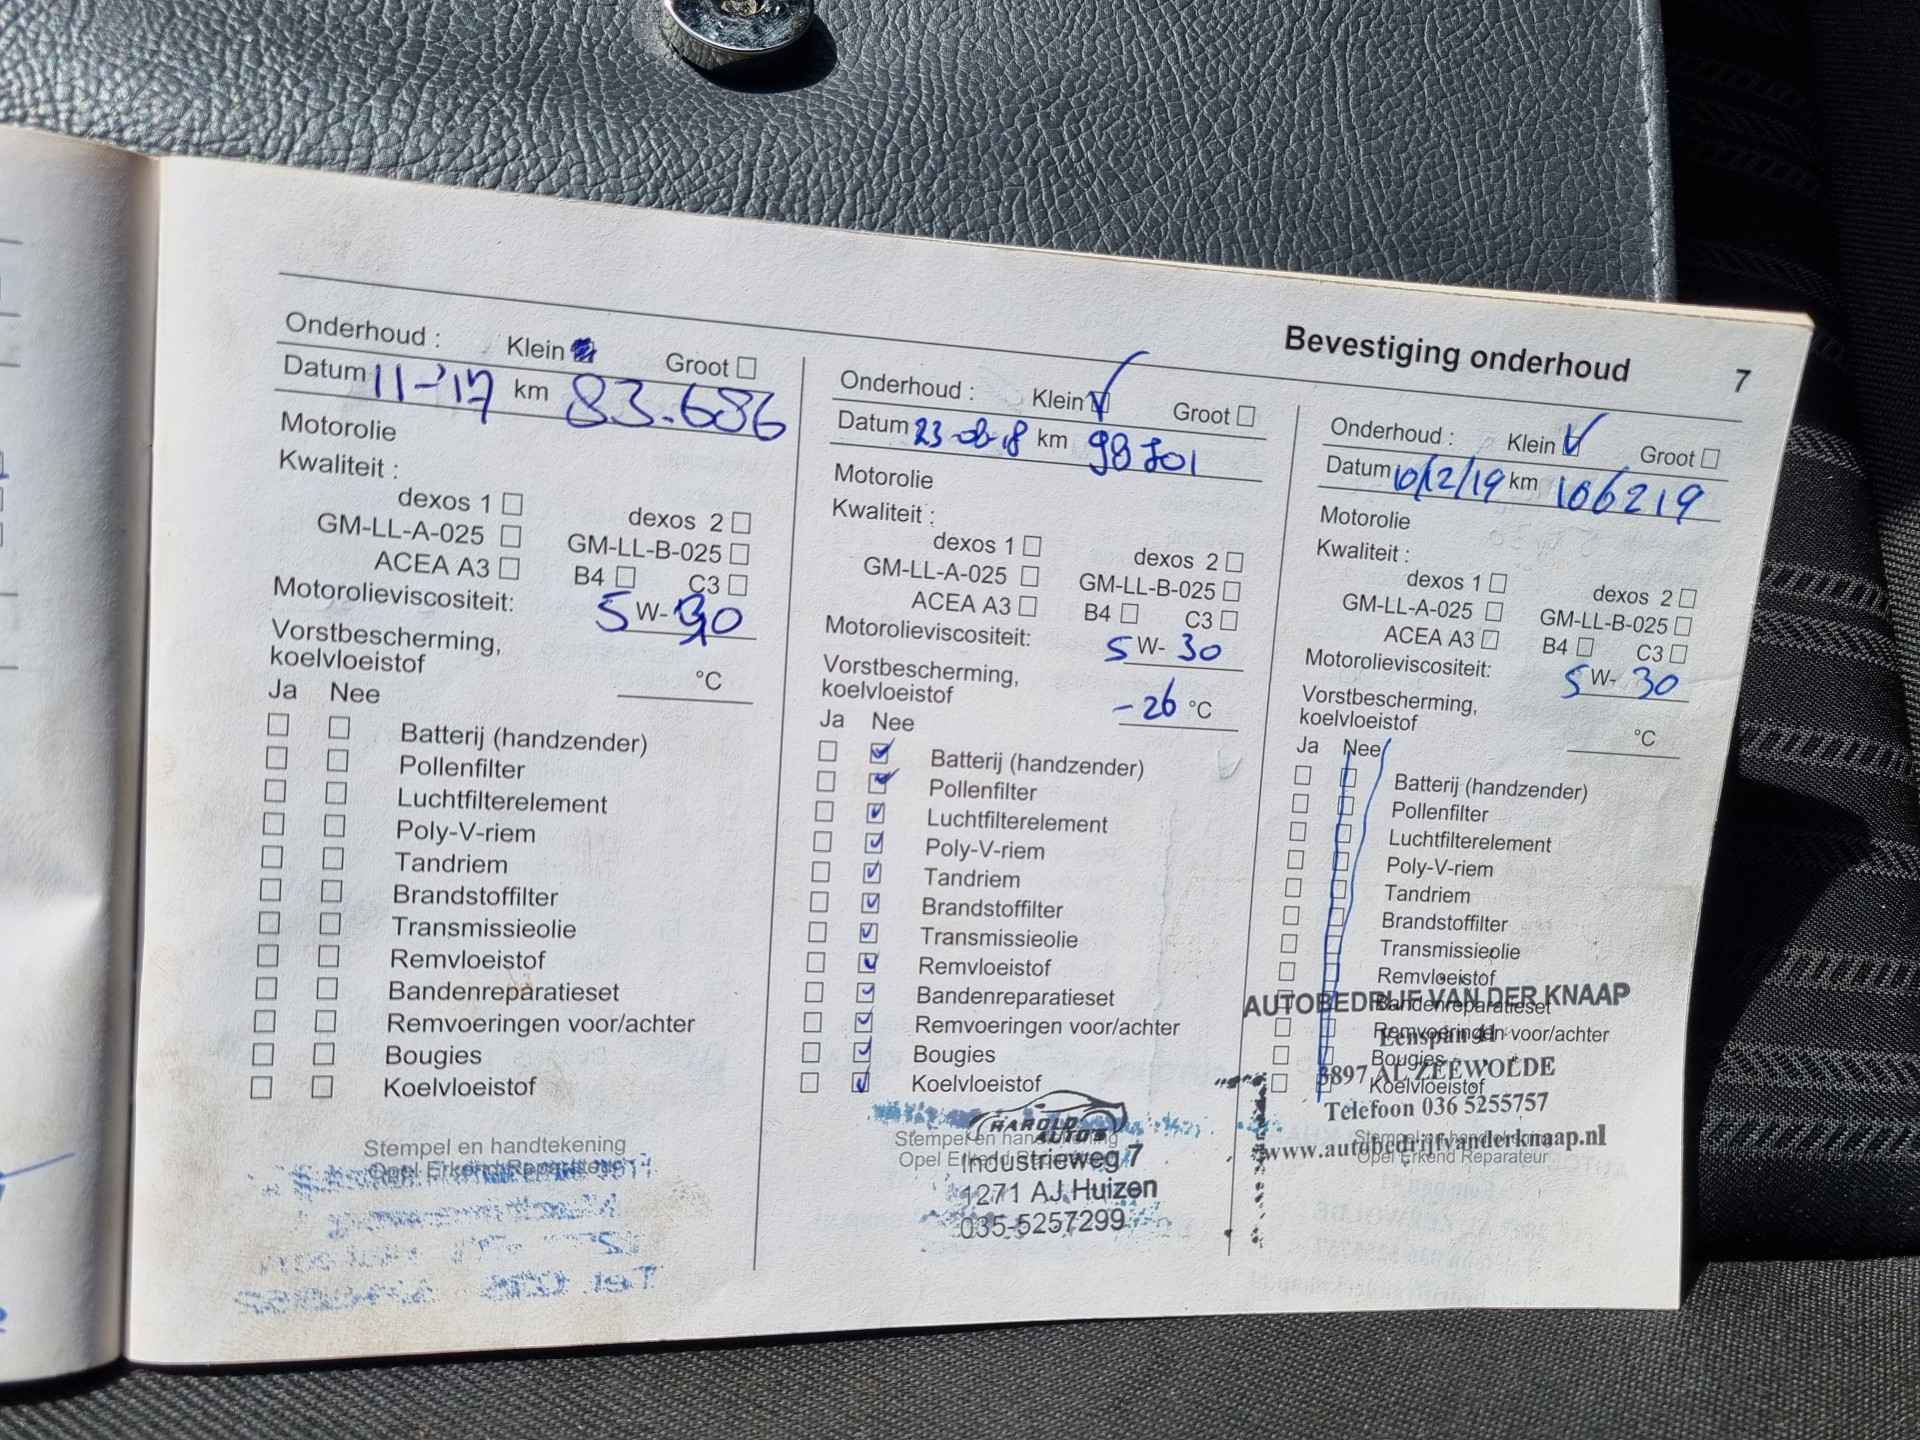 Bevestiging onderhoud 7
Onderhoud : Klein Groot
Datum 11-'17 km 83.686
Motorolie
Kwaliteit :
dexos 1 dexos 2
GM-LL-A-025 GM-LL-B-025
ACEA A3 B4 C3
Motorolieviscositeit: 5 W- 30
Vorstbescherming,
koelvloeistof °C
Ja Nee
Batterij (handzender)
Pollenfilter
Luchtfilterelement
Poly-V-riem
Tandriem
Brandstoffilter
Transmissieolie
Remvloeistof
Bandenreparatieset
Remvoeringen voor/achter
Bougies
Koelvloeistof
Stempel en handtekening
Opel Erkend Reparateur
Onderhoud : Klein Groot
Datum 23-08-18 km 98701
Motorolie
Kwaliteit :
dexos 1 dexos 2
GM-LL-A-025 GM-LL-B-025
ACEA A3 B4 C3
Motorolieviscositeit: 5 W- 30
Vorstbescherming,
koelvloeistof -26 °C
Ja Nee
Batterij (handzender)
Pollenfilter
Luchtfilterelement
Poly-V-riem
Tandriem
Brandstoffilter
Transmissieolie
Remvloeistof
Bandenreparatieset
Remvoeringen voor/achter
Bougies
Koelvloeistof
Stempel en handtekening
Opel Erkend Reparateur
HAROLD
AUTO'S
Industrieweg 7
1271 AJ Huizen
035-5257299
Onderhoud : Klein Groot
Datum 10/12/19 km 106219
Motorolie
Kwaliteit :
dexos 1 dexos 2
GM-LL-A-025 GM-LL-B-025
ACEA A3 B4 C3
Motorolieviscositeit: 5 W- 30
Vorstbescherming,
koelvloeistof °C
Ja Nee
Batterij (handzender)
Pollenfilter
Luchtfilterelement
Poly-V-riem
Tandriem
Brandstoffilter
Transmissieolie
Remvloeistof
Bandenreparatieset
Remvoeringen voor/achter
Bougies
Koelvloeistof
Stempel en handtekening
Opel Erkend Reparateur
AUTOBEDRIJF VAN DER KNAAP
Eenspan 11
3897 AL ZEEWOLDE
Telefoon 036 5255757
www.autobedrijfvanderknaap.nl